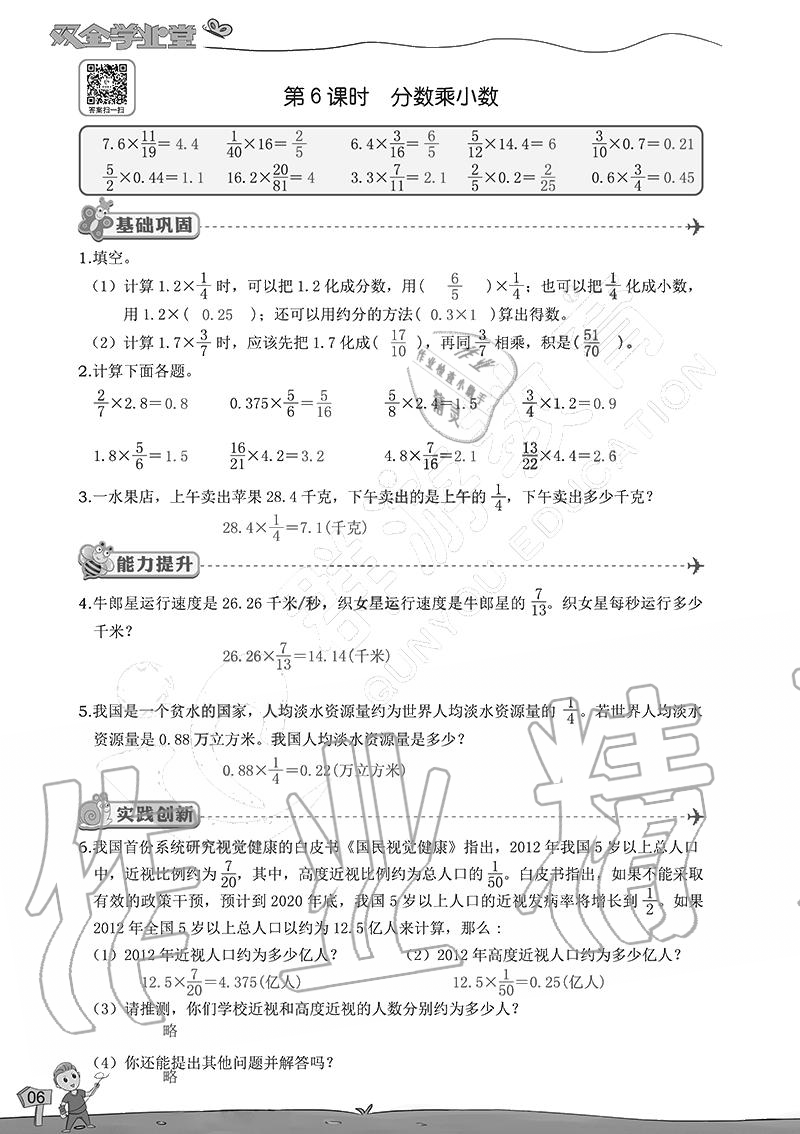 双全学业堂
答案扫一扫
第6课时 分数乘小数
7.6×11/19=4.4 1/40×16=2/5 6.4×3/16=6/5 5/12×14.4=6 3/10×0.7=0.21
5/2×0.44=1.1 16.2×20/81=4 3.3×7/11=2.1 2/5×0.2=2/25 0.6×3/4=0.45
基础巩固
1.填空。
(1)计算1.2×1/4时,可以把1.2化成分数,用( 6/5 )×1/4;也可以把1/4化成小数,
用1.2×( 0.25 );还可以用约分的方法( 0.3×1 )算出得数。
(2)计算1.7×3/7时,应该先把1.7化成( 17/10 ),再同3/7相乘,积是( 51/70 )。
2.计算下面各题。
2/7×2.8=0.8 0.375×5/6=5/16 5/8×2.4=1.5 3/4×1.2=0.9
1.8×5/6=1.5 16/21×4.2=3.2 4.8×7/16=2.1 13/22×4.4=2.6
3.一水果店,上午卖出苹果28.4千克,下午卖出的是上午的1/4,下午卖出多少千克?
28.4×1/4=7.1(千克)
能力提升
4.牛郎星运行速度是26.26千米/秒,织女星运行速度是牛郎星的7/13。织女星每秒运行多少
千米?
26.26×7/13=14.14(千米)
5.我国是一个贫水的国家,人均淡水资源量约为世界人均淡水资源量的1/4。若世界人均淡水
资源量是0.88万立方米。我国人均淡水资源量是多少?
0.88×1/4=0.22(万立方米)
实践创新
6.我国首份系统研究视觉健康的白皮书《国民视觉健康》指出,2012年我国5岁以上总人口
中,近视比例约为7/20,其中,高度近视比例约为总人口的1/50。白皮书指出,如果不能采取
有效的政策干预,预计到2020年底,我国5岁以上人口的近视发病率将增长到1/2。如果
2012年全国5岁以上总人口以约为12.5亿人来计算,那么:
(1)2012年近视人口约为多少亿人? (2)2012年高度近视人口约为多少亿人?
12.5×7/20=4.375(亿人) 12.5×1/50=0.25(亿人)
(3)请推测,你们学校近视和高度近视的人数分别约为多少人?
略
(4)你还能提出其他问题并解答吗?
略
06
作业精
作业检查小助手
群游教育
QUNYOU EDUCATION